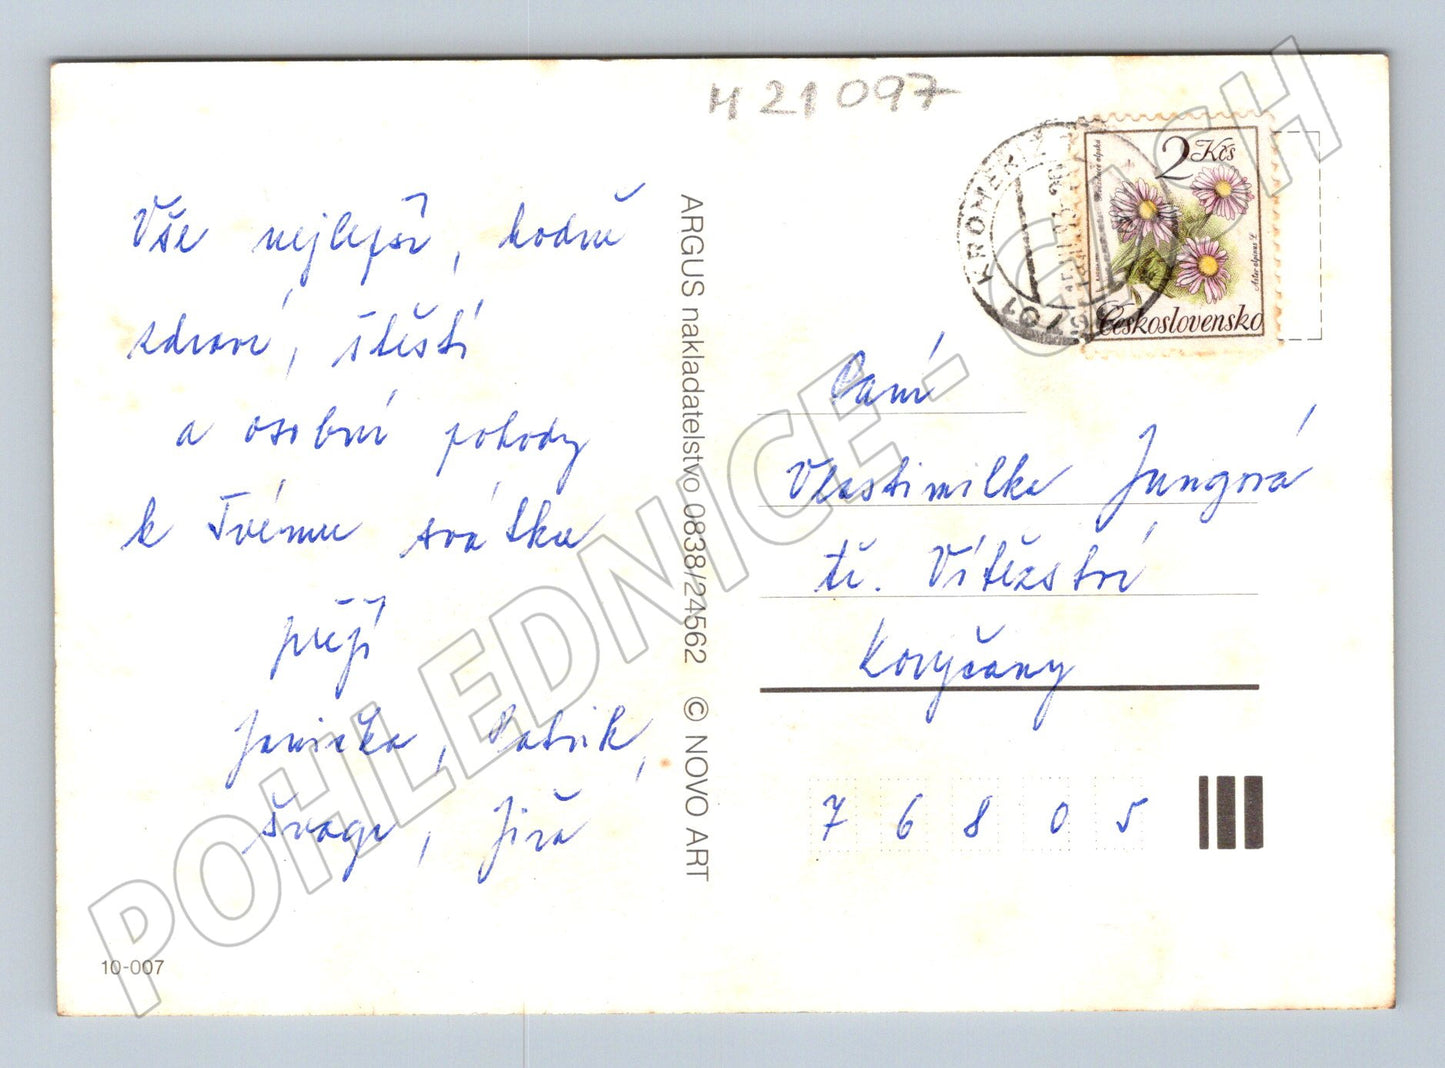 M 21 097
Vše nejlepší, hodně
zdraví, štěstí
a osobní pohody
k Tvému svátku
přejí
Janička, Patrik,
Švagr, Jiří
10-007
ARGUS nakladatelstvo 0838/24562 © NOVO ART
KROMĚŘÍŽ 1
2 Kčs
Aster alpinus L.
Československo
Paní
Vlastimilka Jungová
tř. Vítězství
Koryčany
7 6 8 0 5
POHLEDNICE - CASH